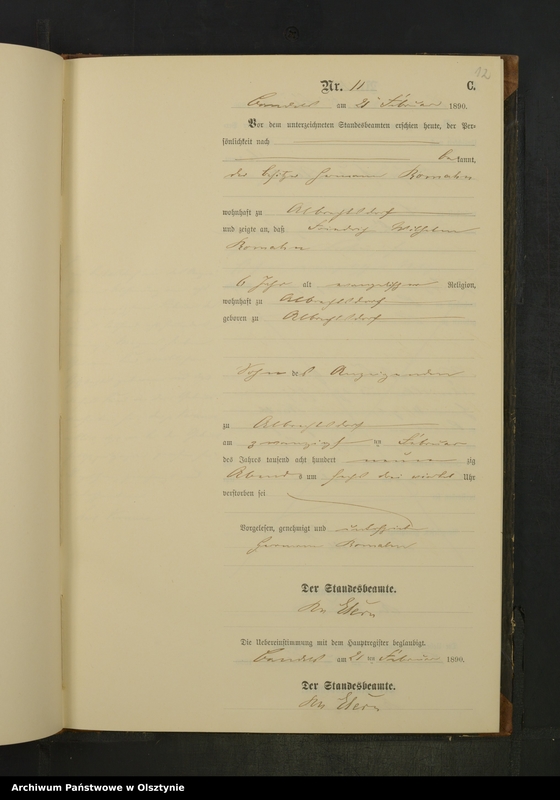 12
Nr. 11 C.
am 21 Februar 1890.
Vor dem unterzeichneten Standesbeamten erschien heute, der Per-
sönlichkeit nach
bekannt,
der Besitzer Hermann Romahn
wohnhaft zu Albrechtsdorf
und zeigte an, daß Friedrich Wilhelm
Romahn
6 Jahr alt evangelischer Religion,
wohnhaft zu Albrechtsdorf
geboren zu Albrechtsdorf
Sohn des Anzeigenden
zu Albrechtsdorf
am zwanzigst en Februar
des Jahres tausend acht hundert neun zig
Abend s um drei viertel Uhr
verstorben sei
Vorgelesen, genehmigt und unterschrieben
Hermann Romahn
Der Standesbeamte.
Die Uebereinstimmung mit dem Hauptregister beglaubigt.
am 21 ten Februar 1890.
Der Standesbeamte.
Archiwum Państwowe w Olsztynie